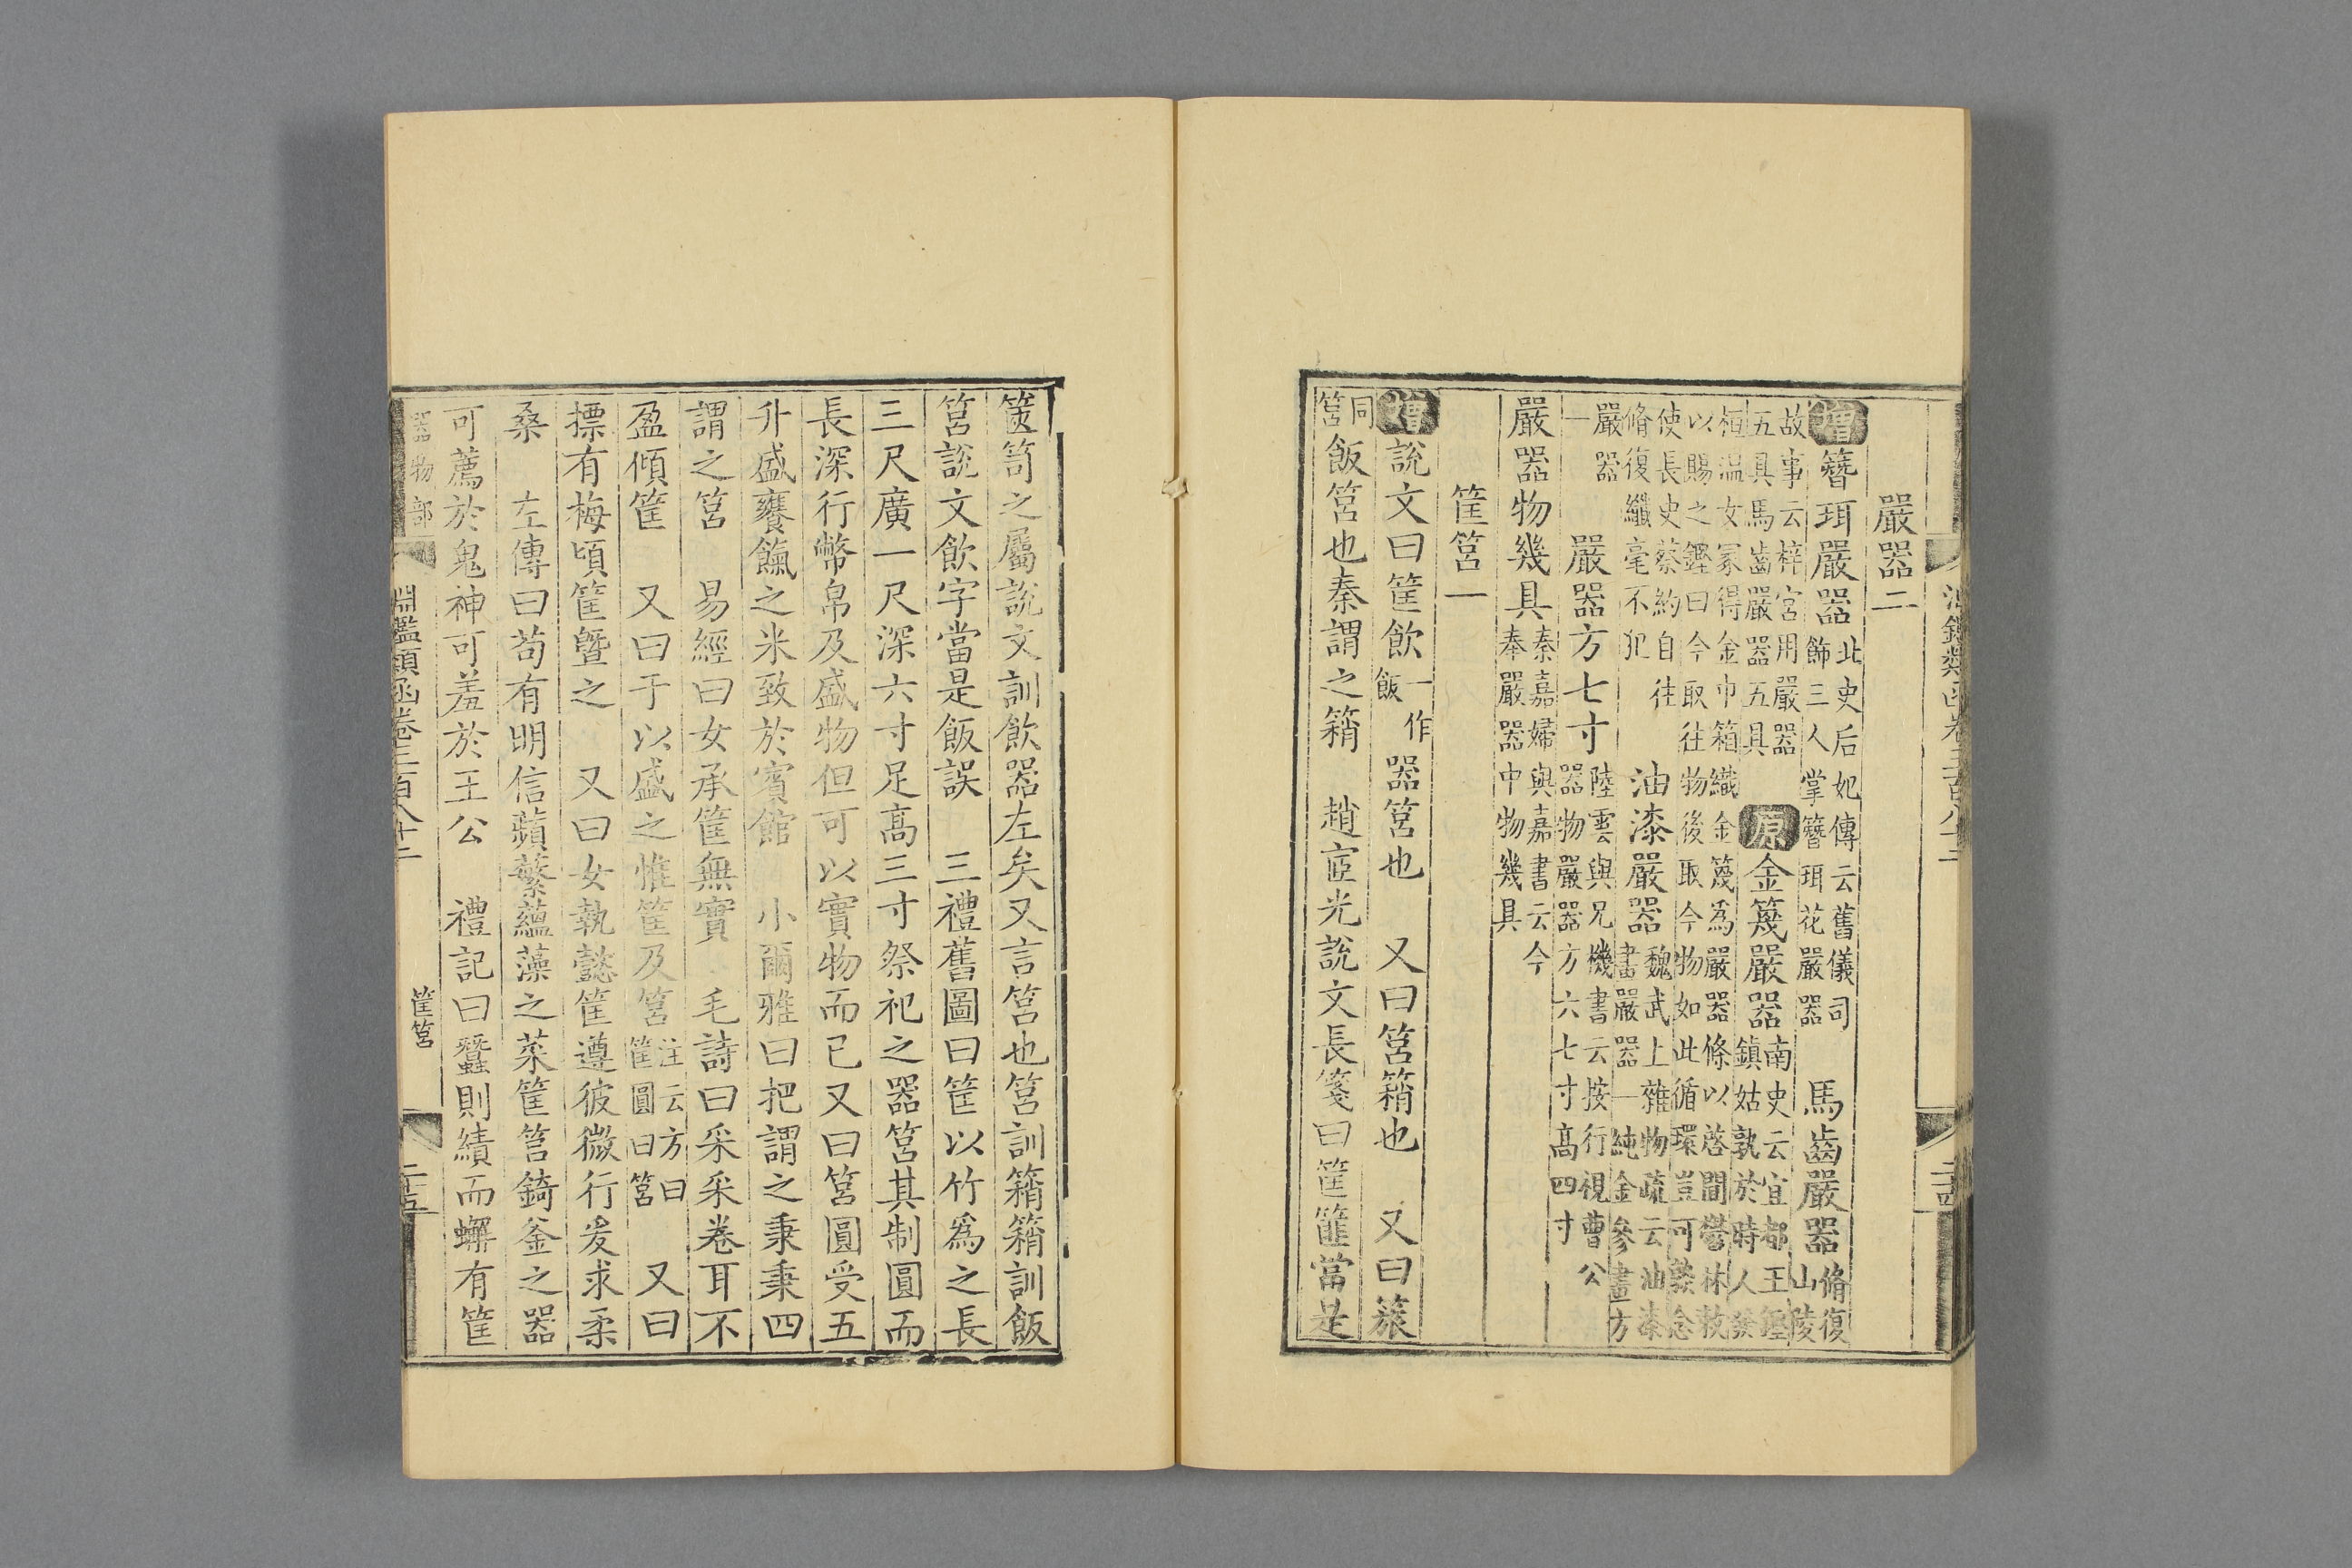 嚴器二
增簪珥嚴器此史后妃傳云舊儀司飾三人掌簪珥花嚴器 馬齒嚴器脩復山陵
故事云梓宮用嚴器五具馬齒嚴器五具 原金篾嚴器南史云宜都王鏗鎮姑孰於時人發
桓温女冢得金巾箱織金篾為嚴器條以啓聞鬱林敕以賜之鏗曰今取往物後取今物如此循環豈可熟念
使長史蔡約自往脩復纖毫不犯 油漆嚴器魏武上雜物疏云油漆畫嚴器一純金參畫方
嚴器一 嚴器方七寸陸雲與兄機書云按行視曹公器物嚴器方六七寸高四寸
嚴器物幾具秦嘉婦與嘉書云今奉嚴器中物幾具
筐筥一
增說文曰筐飲一作飯器筥也 又曰筥箱也 又曰䉛
同筥飯筥也秦謂之箱 趙宧光說文長箋曰筐篚當是
篋笥之屬說文訓飲器左矣又言筥也筥訓箱箱訓飯
筥說文飲字當是飯誤 三禮舊圖曰筐以竹為之長
三尺廣一尺深六寸足高三寸祭祀之器筥其制圓而
長深行幣帛及盛物但可以實物而已又曰筥圓受五
升盛饔餼之米致於賓館 小爾雅曰把謂之秉秉四
謂之筥 易經曰女承筐無實 毛詩曰采采卷耳不
盈傾筐 又曰于以盛之惟筐及筥注云方曰筐圓曰筥 又曰
摽有梅頃筐曁之 又曰女執懿筐遵彼微行爰求柔
桑 左傳曰苟有明信蘋蘩蘊藻之菜筐筥錡釜之器
可薦於鬼神可羞於王公 禮記曰蠶則績而蠏有筐
器物部 淵鑑類函卷三百八十二 筐筥 二十五